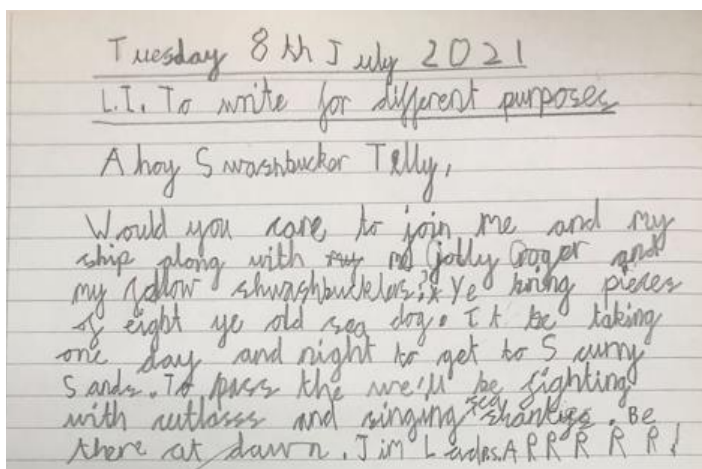 Tuesday 8th July 2021
L.I. To write for different purposes
Ahoy Swashbuckor Telly,
Would you care to join me and my
ship along with my Jolly Goger and
my fellow shwashbucklers? Ye bring pieces
of eight ye old sea dog. It be taking
one day and night to get to Scurry
Sands. To pass the we'll be fighting
with cutlasss and singing sea shanties. Be
there at dawn. Jim Lads. A R R R R R!